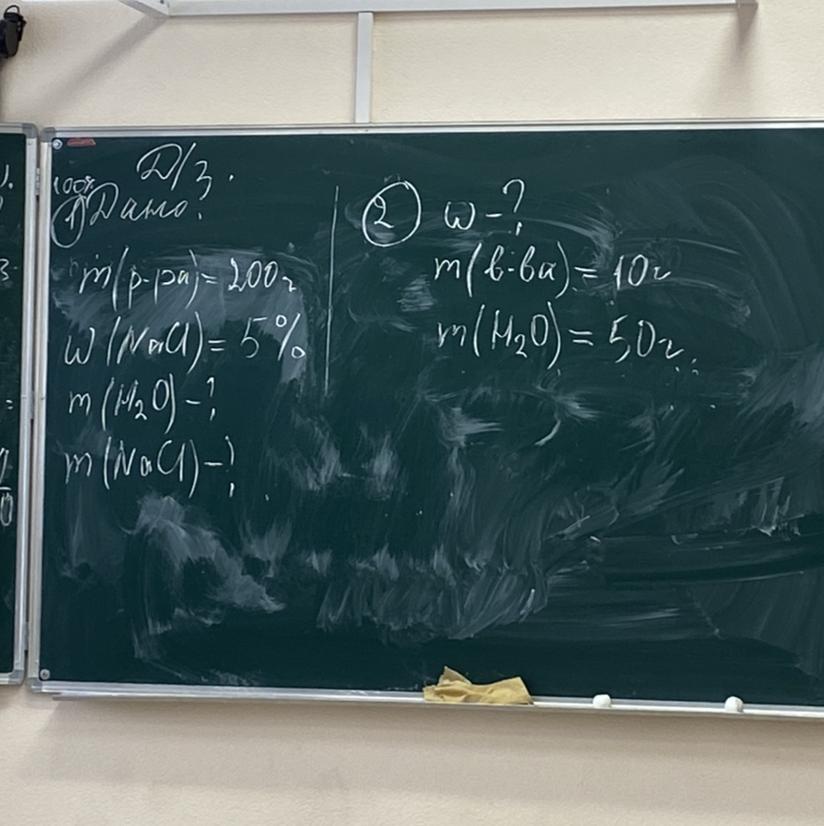 Д/З.
100%
① Дано:
m(р-ра)= 200г
ω(NaCl)= 5%
m(H₂O)-?
m(NaCl)-?
② ω-?
m(в-ва)= 10г
m(H₂O)= 50г